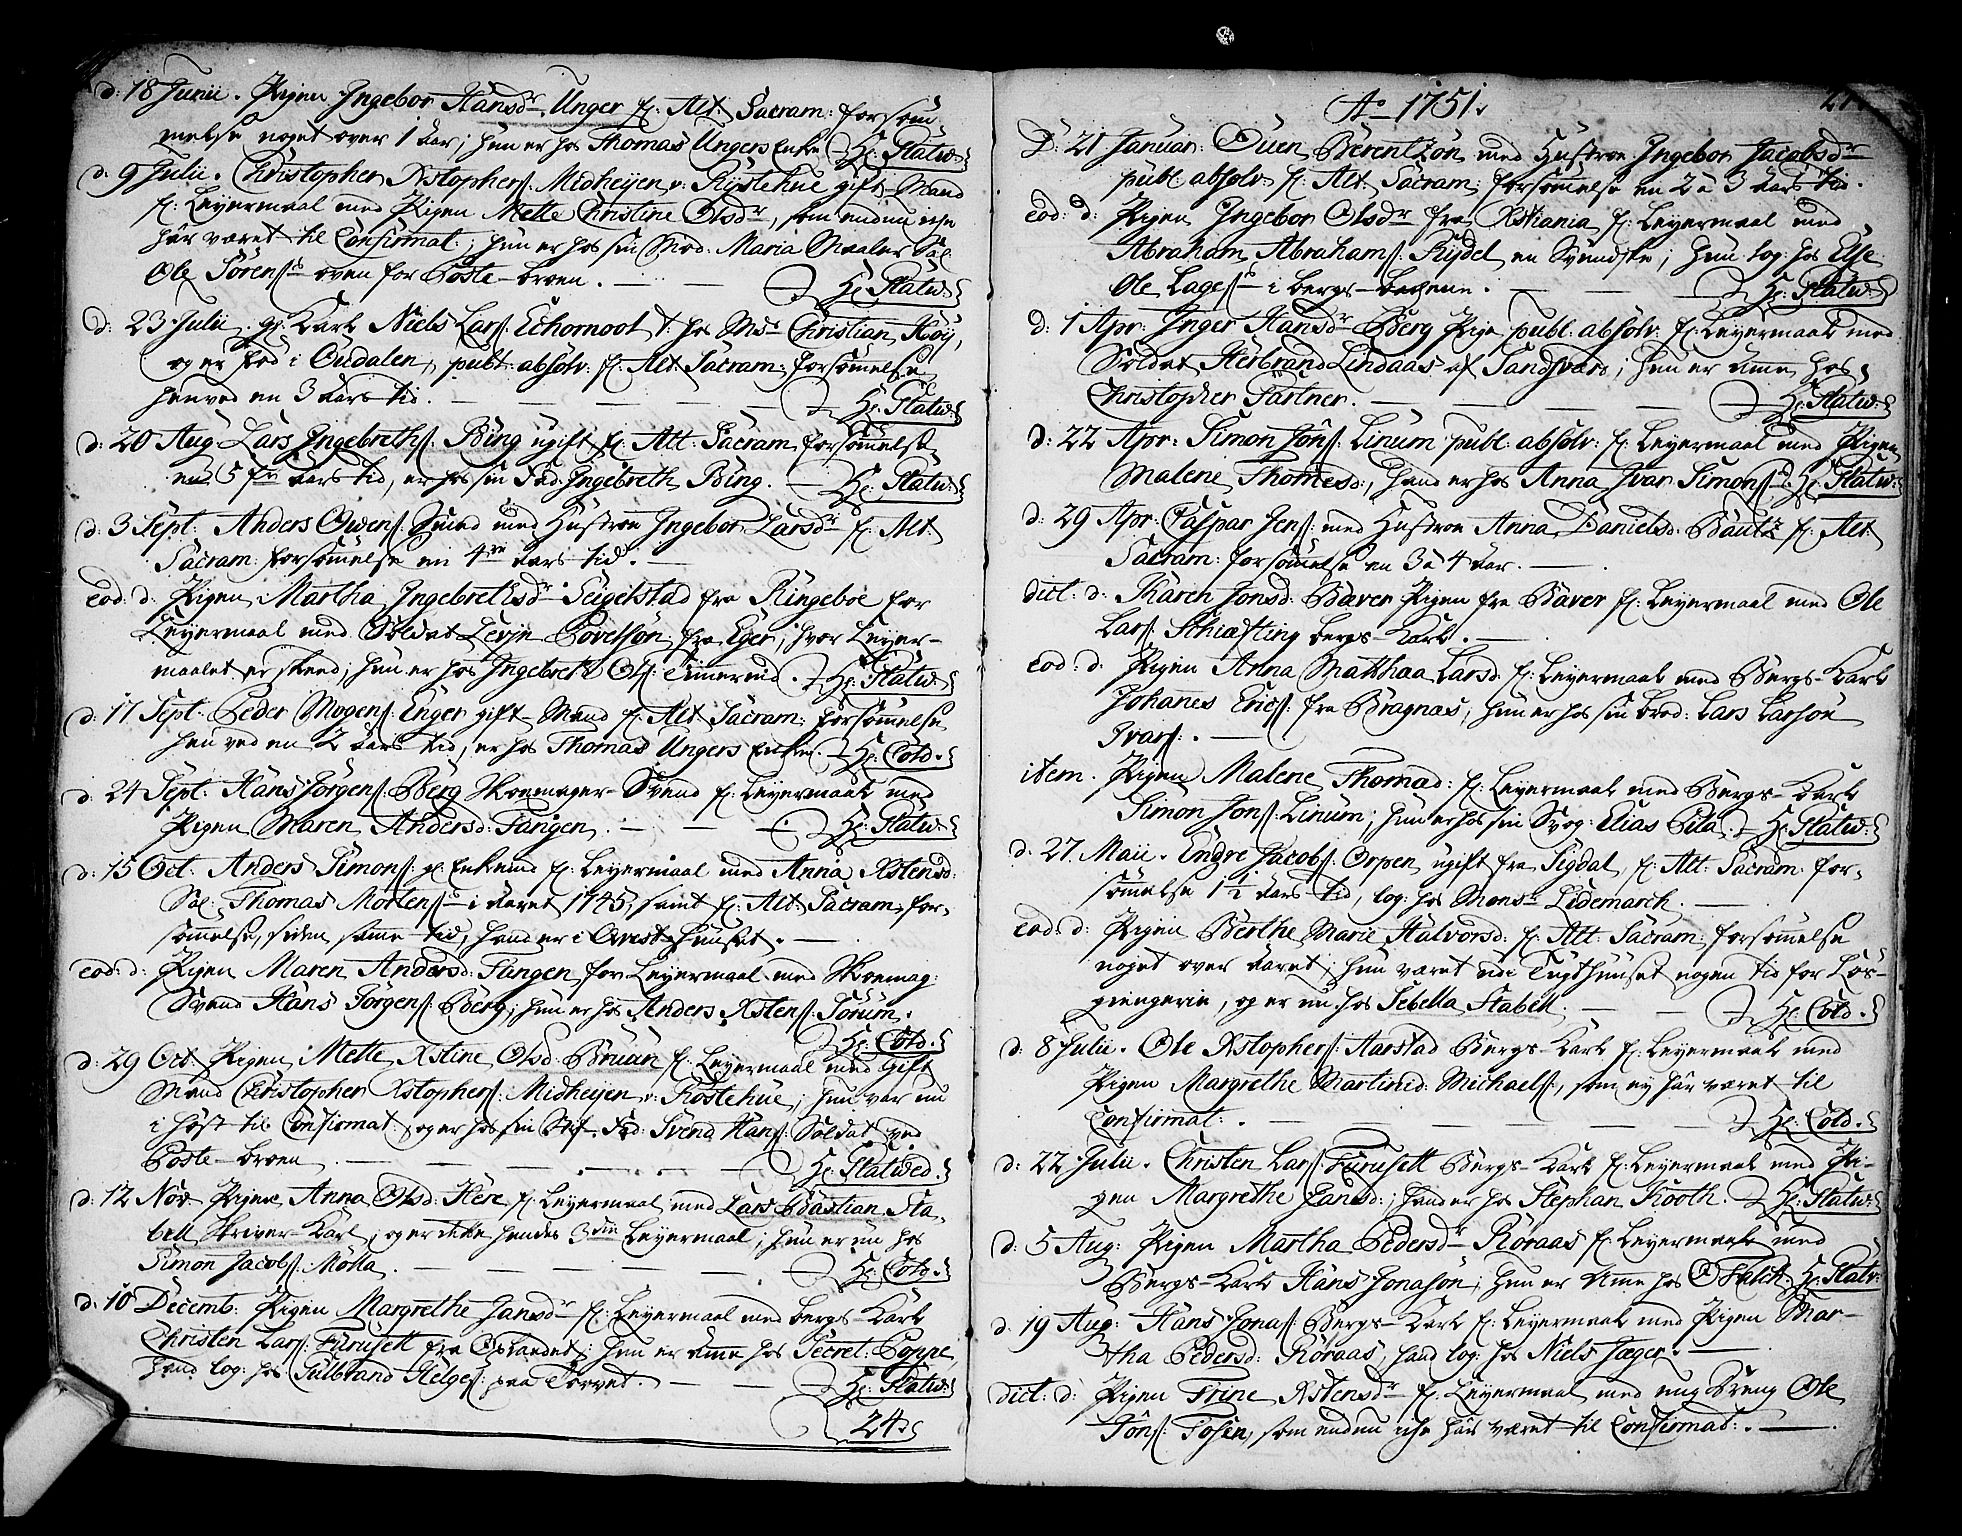 d: 18 Junii. Pigen Ingebor Hansdr Unger f: Alt: Sacram: forsøm̄
melse noget over 1 Aar; hun er hos Thomas Ungers Enke Hr: Statw:
d: 9 Julii. Christopher Xstophers: Midheyen v: Rystehue gift-Mand
f: Leyermaal med Pigen Mette Christine Olsdr, som endnu icke
här været til Confirmat:; hun er hos sin Mod: Maria Maaler Sal:
Ole Sørens: oven for Poste-broen. Hr: Statw:
d: 23 Julii. gl: Karl Niels Lars: Echornoot t: hos Msr Christian Höy,
og er fød i Oudalen, publ: absolv: f: Alt: Sacram: forsøm̄else
henved en 3 Aars tid. Hr: Statw:
d: 20 Aug: Lars Ingebreths: Bing ugift f: Alt: Sacram: forsøm̄else
en 5 Aars tid, er hos sin Fad: Ingebreth Bing. Hr: Statw:
d: 3 Sept: Anders Owens: Smed med Hustroe Ingebor Larsdr f: Alt:
Sacram: forsøm̄else en 4re Aars tid.
eod: d: Pigen Martha Ingebrethsdr Seigelstad fra Ringeboe for
Leyermaal med Soldat Levje Povelsøn fra Eger, hvor Leyer-
maalet er skeed; hun er hos Ingebreth Ols: Tim̄erud. Hr: Statw:
d: 17 Sept: Peder Mogens: Enger gift-Mand f: Alt: Sacram: forsøm̄else
henved en 2 Aars tid, er hos Thomas Ungers Enke. Hr: Cold.
d: 24 Sept: Hans Jörgens: Berg Skoemager-Svend f: Leyermaal med
Pigen Maren Andersd: Fangen. Hr: Statw:
d: 15 Oct: Anders Simons: gl: Enkemd f: Leyermaal med Anna Xstensd:
Sal: Thomas Mortens: i Aaret 1745, samt f: Alt: Sacram: for-
søm̄else, siden samme tid, hand er i Qvist-huuset.
eod: d: Pigen Maren Andersd: Fangen for Leyermaal med Skoemag:
Svend Hans Jörgens: Berg; hun er hos Anders Xstens: Sørum.
Hr: Cold.
d: 29 Oct: Pigen Mette Xstine Olsd: Bruun f: Leyermaal med gift
Mand Christopher Xstophers: Midheyen v: Röstehue; hun var nu
i höst til Confirmat: og er hos sin Stif-Fad: Svend Hans: Soldat ved
Poste-broen Hr: Statwed.
d: 12 Nov: Pigen Anna Olsd: Here f: Leyermaal med Lars Bastian Sta-
bell Skriver-Karl, og er dette hendes 3die Leyermaal; hun er nu hos
Simon Jacobs: Mölla. Hr: Cold.
d: 10 Decemb: Pigen Margrethe Jansdr f: Leyermaal med bergs-Karl
Christen Lars: Furusett fra Oplandet; hun er Am̄e hos Secret: Poppe,
hand log: hos Gulbrand Helges: paa Torvet. Hr: Statw:
24.
Ao 1751.
D: 21 Januar: Ouen Berentzön med Hustroe Ingebor Jacobsdr
publ: absolv: f: Alt: Sacram: forsøm̄else en 2 à 3 Aars tid.
eod: d: Pigen Ingebor Olsdr fra Xstiania f: Leyermaal med
Abraham Abrahams: Rydel en Svendske; hun log: hos Else
Ole Lages: i bergs-bachene. Hr: Statw:
d: 1 Apr: Inger Hansdr Berg Pige publ: absolv: f: Leyermaal med
Soldat Herbrand Lindaas af Sandsvær; hun er Am̄e hos
Christopher Gartner. Hr: Statw:
d: 22 Apr: Simon Jöns: Linum publ: absolv: f: Leyermaal med Pigen
Malene Thomesd:, hand er hos Anna Ivar Simons: Hr: Statw:
d: 29 Apr: Caspar Jens: med Hustroe Anna Danielsd: Bautz f: Alt:
Sacram: forsøm̄else en 3 à 4 Aar.
dict: d: Karen Jonsd: Bæver Pigen fra Bæver f: Leyermaal med Ole
Lars: Schiæfting bergs-Karl.
eod: d: Pigen Anna Matthæa Larsd: f: Leyermaal med Bergs-Karl
Johanes Erics: fra Bragnæs, hun er hos sin brod: Lars Larsön
Ivars:.
item. Pigen Malene Thomæd: f: Leyermaal med Bergs-Karl
Simon Jons: Linum; hun er hos sin Svog: Elias Pila. Hr: Statw:
d: 27 Maii. Endre Jacobs: Orpen ugift fra Sigdal, f: Alt: Sacram: for-
søm̄else 1 1/2 Aars tid, log: hos Monsr Lidemarch.
eod: d: Pigen Berthe Marie Halvorsd: f: Alt: Sacram: forsøm̄else
noget over Aaret; hun været udi Tugthuuset nogen tid for Løs-
giengerie, og er nu hos Sebella Stabell. Hr: Cold.
d: 8 Julii. Ole Xstophers: Aarstad Bergs-Karl f: Leyermaal med
Pigen Margrethe Martinid: Michaels:, som ey här været til
Confirmat:. Hr: Cold.
d: 22 Julii. Christen Lars: Furusett Bergs-Karl f: Leyermaal med Pi-
gen Margrethe Jansd:; hand er hos Stephan Kooth. Hr: Statw:
d: 5 Aug: Pigen Martha Pedersdr Röraas f: Leyermaal med
Bergs-Karl Hans Jonasön, hun er Am̄e hos O: Falch. Hr: Statw:
d: 19 Aug: Hans Jonas: Bergs-Karl f: Leyermaal med Pigen Mar-
tha Pedersd: Röraas, hand log: hos Niels Jæger.
dict: d: Pigen Trine Xstensdr f: Leyermaal med ung Dreng Ole
Töns: Fosen, som endnu icke här været til Confirmat:.